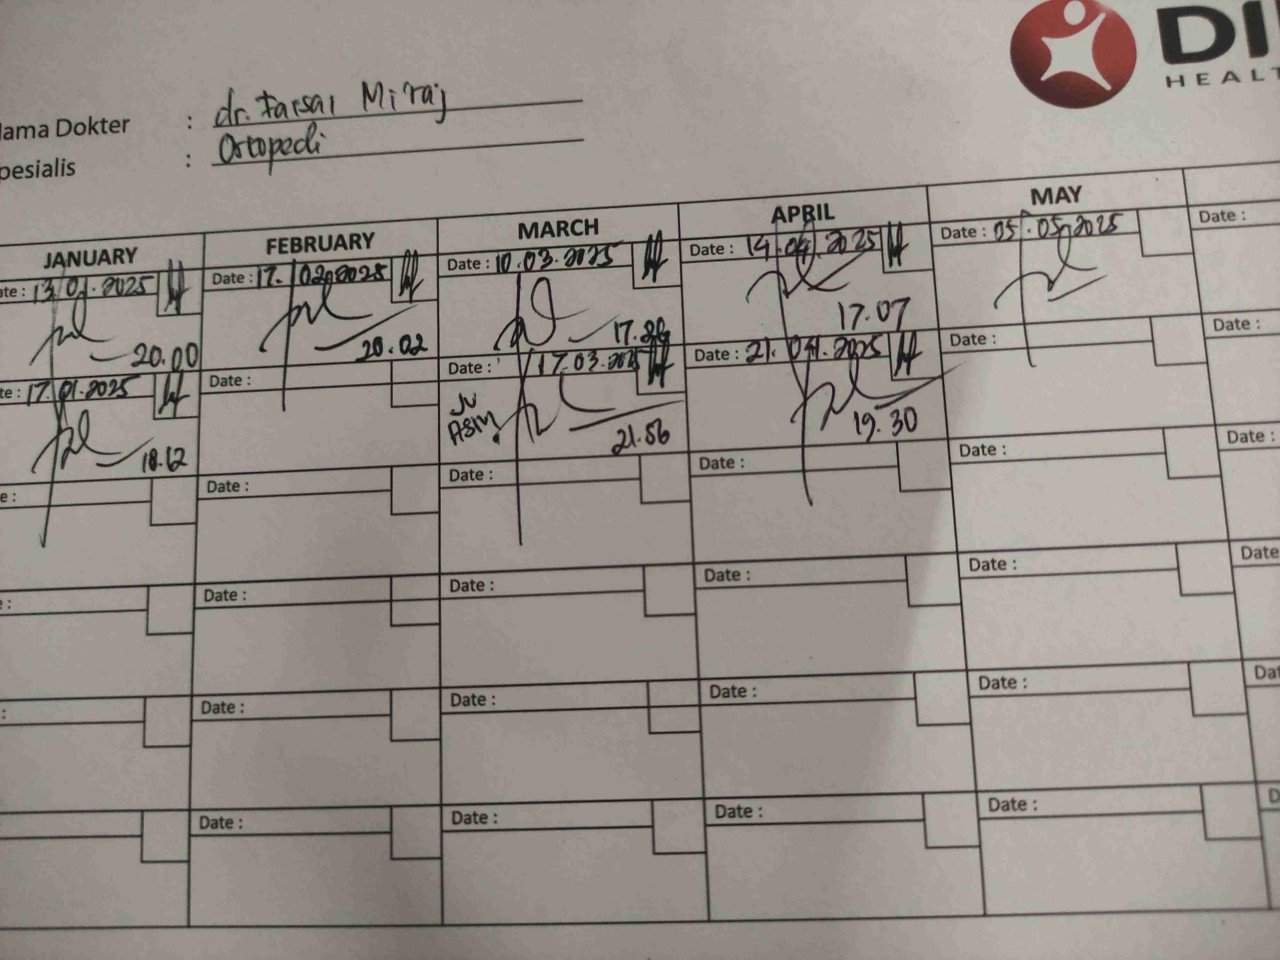 DI
HEALT
lama Dokter : dr. Faisal Miraj
pesialis : Ortopedi
JANUARY FEBRUARY MARCH APRIL MAY
ate : 13.01.2025 Date : 17.02.2025 Date : 10.03.2025 Date : 14.04.2025 Date : 05.05.2025 Date :
20.00 20.02 17.26 17.07
te : 17.01.2025 Date : Date : 17.03.2025 Date : 21.04.2025 Date : Date :
18.12 21.56 19.30
e : Date : Date : Date : Date : Date :
e : Date : Date : Date : Date : Date
: Date : Date : Date : Date : Dat
Date : Date : Date : Date : D